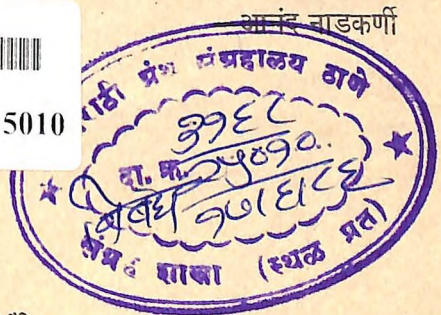 आनंद नाडकर्णी
5010
मराठी ग्रंथ संग्रहालय ठाणे
३१६८
दा. क्र. २५०१०
१७।६।८६
संग्रह शाखा (स्थळ प्रत)